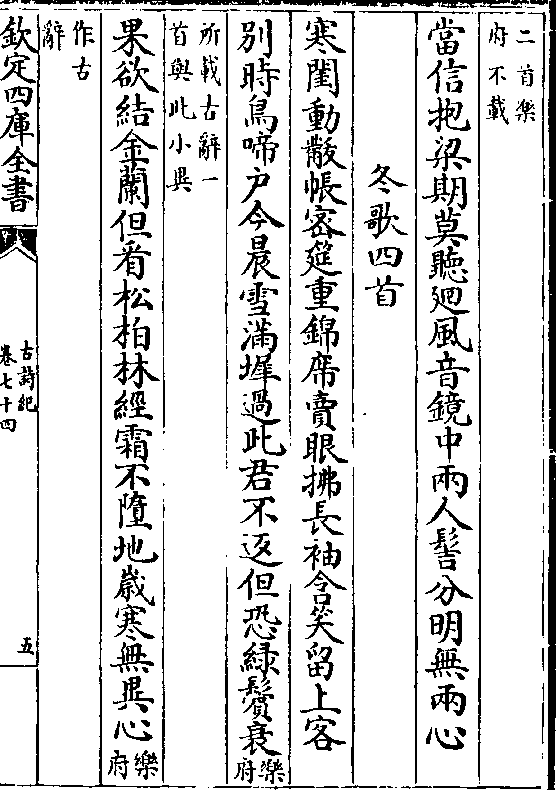 二首樂
府不載
當信抱梁期莫聽廻風音鏡中兩人髻分明無兩心
冬歌四首
寒閨動黻帳密筵重錦席賣眼拂長袖含笑留上客
別時鳥啼户今晨雪滿墀過此君不返但恐緑鬢衰樂府
所載古辭一
首與此小異
果欲結金蘭但看松柏林經霜不墮地歲寒無異心樂府
作古
辭
欽定四庫全書
古詩紀
卷七十四
五